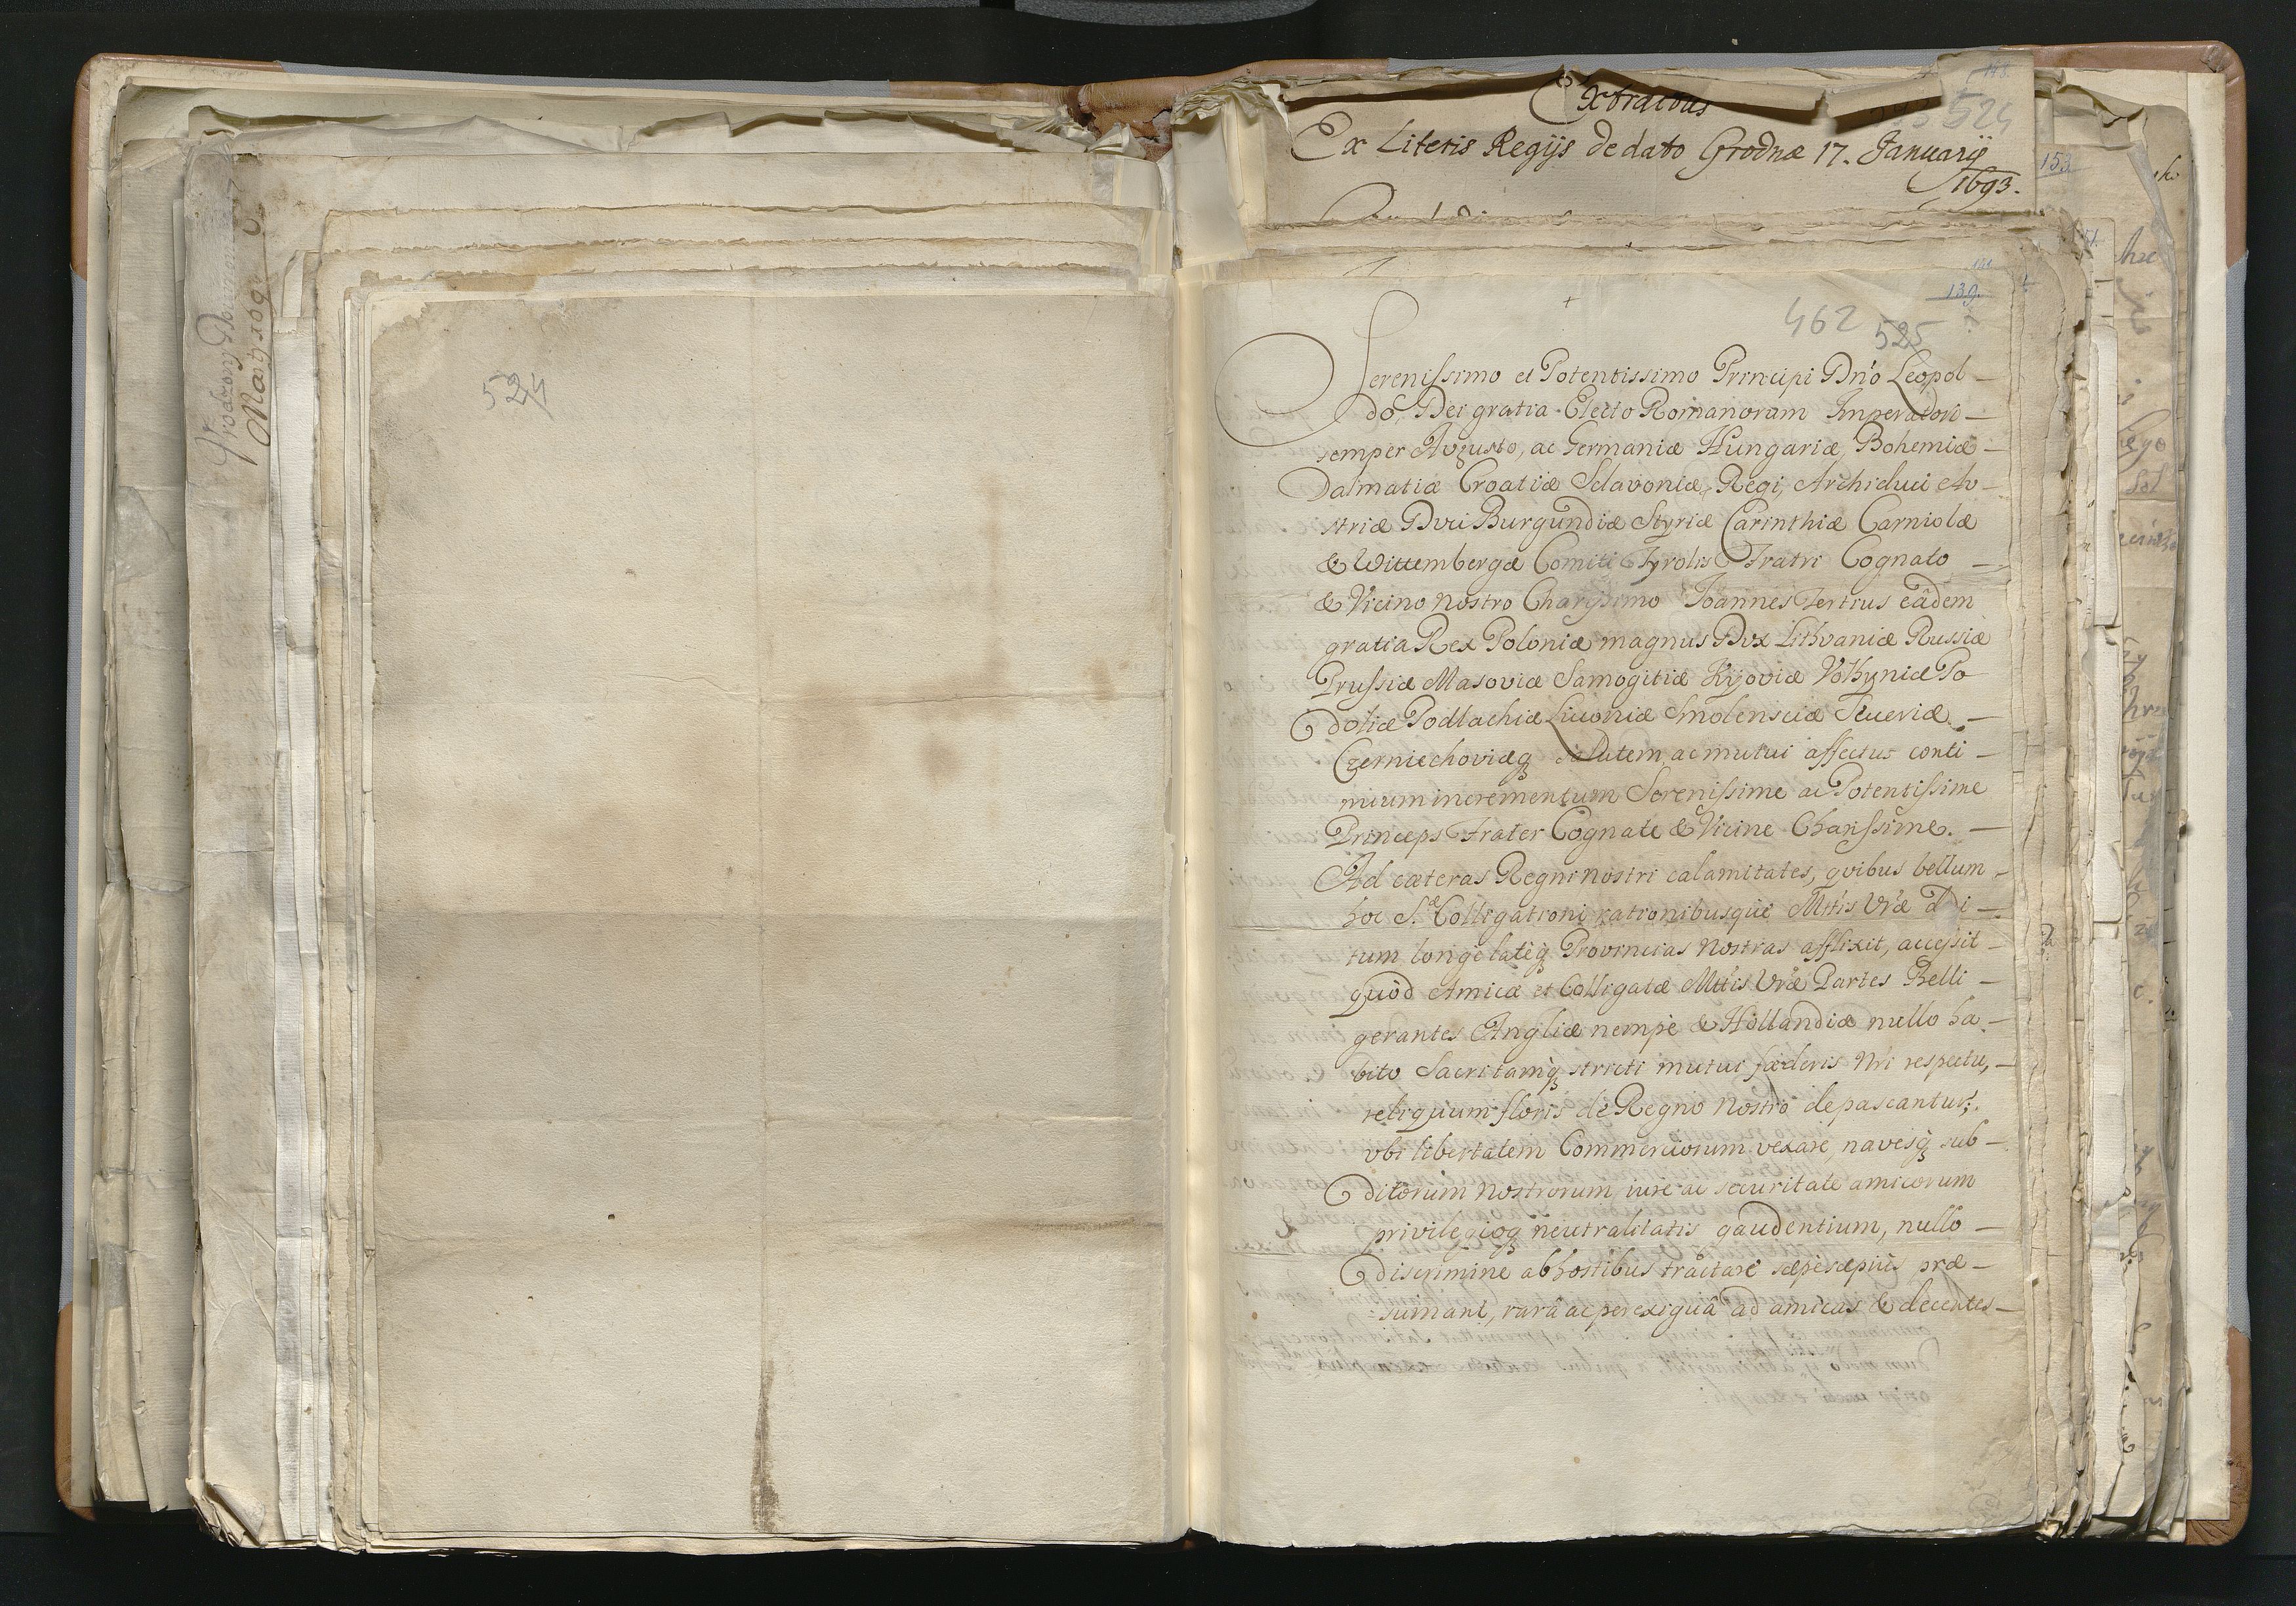 524
Extractus
Ex Literis Regijs de dato Grodnæ 17. Januarij
1693.
153
139.
462
525
Serenissimo et Potentissimo Principi Dno Leopol-
do, Dei gratia Electo Romanorum Imperatori
semper Avgusto, ac Germaniæ Hungariæ, Bohemiæ
Dalmatiæ Croatiæ Sclavoniæ, Regi, Archiduci Av-
striæ Dvci Burgundiæ Styriæ Carinthiæ Carniolæ
& Wittembergæ Comiti Tyrolis Fratri Cognato
& Vicino nostro Charissimo Joannes Tertius eâdem
gratia Rex Poloniæ magnus Dvx Lithvaniæ Russiæ
Prussiæ Masoviæ Samogitiæ Kijoviæ Volhyniæ Po
doliæ Podlachiæ Livoniæ Smolensciæ Seueriæ
Czerniechoviæq salutem, ac mutui affectus conti-
nuum incrementum Serenissime ac Potentissime
Princeps Frater Cognate & Vicine Charissime.
Ad cæteras Regni nostri calamitates, qvibus bellum
hoc S.æ Colligationi rationibusque Mttis Vræ
tum longe lateq Provincias nostras afflixit, accessit
quod Amicæ et Colligatæ Mttis Vræ Partes Belli-
gerantes Angliæ nempe & Hollandiæ nullo ha-
bito Sacri tamq stricti mutui fæderis nri respectu,
reliquum floris de Regno nostro depascantur;
vbi libertatem Commerciorum vexare, navesq sub-
ditorum nostrorum iure ac securitate amicorum
privilegioq neutralitatis gaudentium, nullo
discrimine ab hostibus tractare sæpesæpius præ-
sumant, rarâ ac perexiguâ ad amicas & decentes